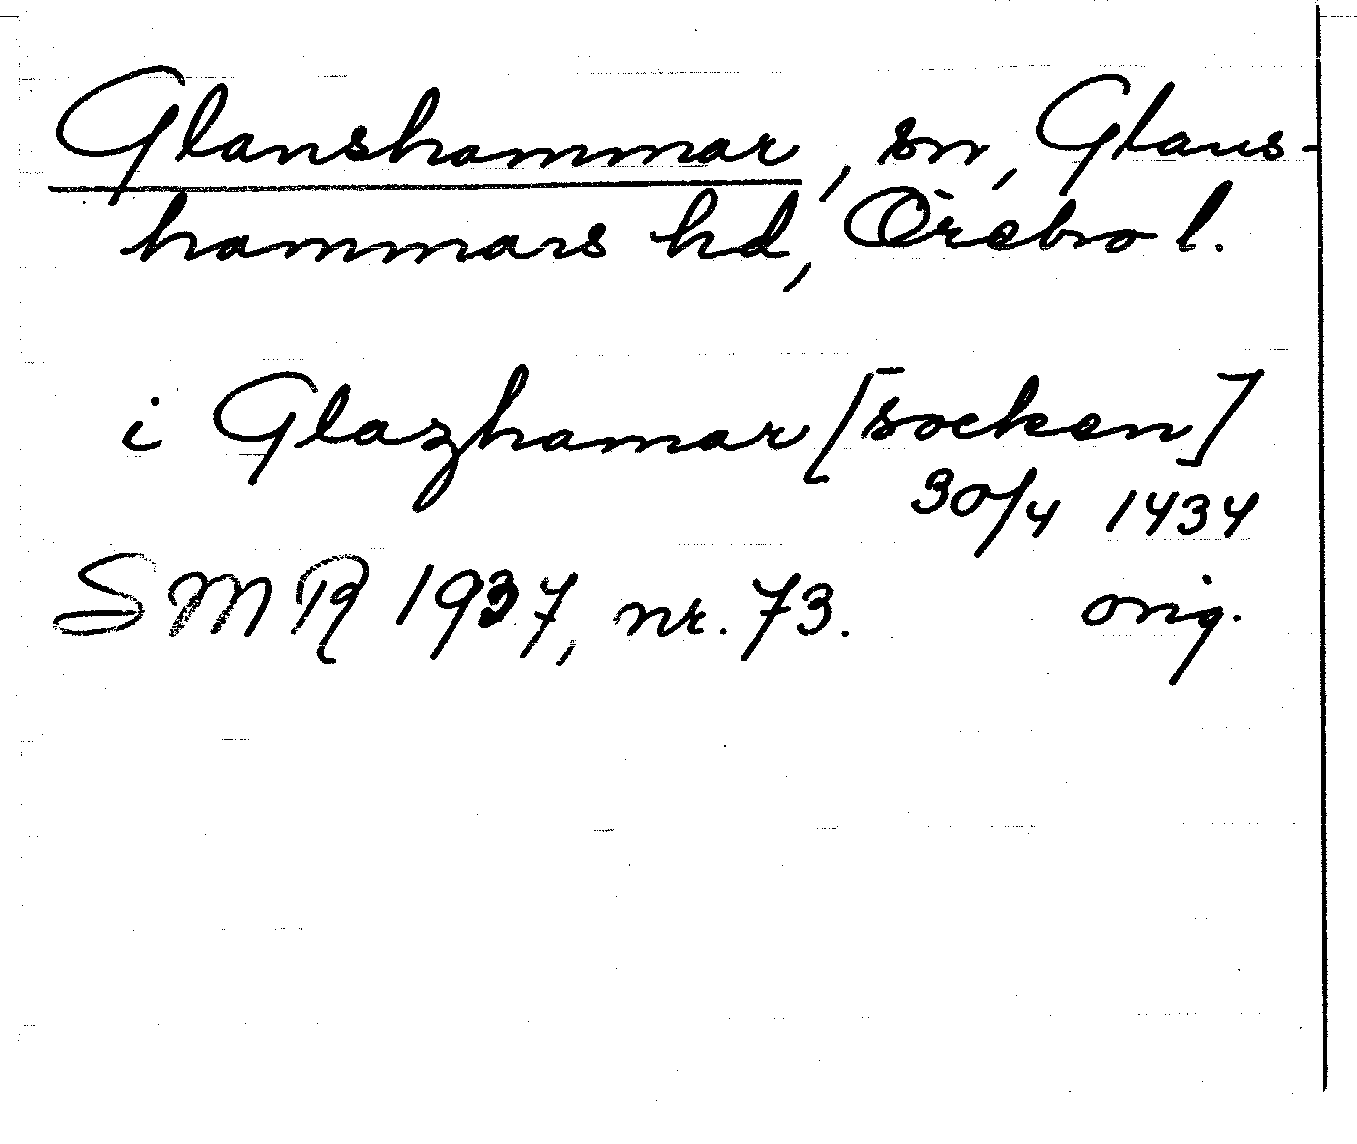 Glanshammar, sn, Glans-
hammars hd, Örebro l.
i Glazhamar [socken]
30/4 1434
SMR 1937, nr. 73. orig.